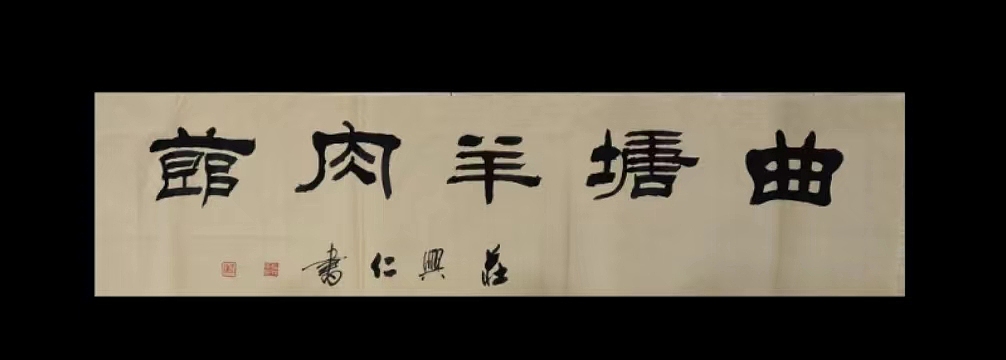 曲塘羊肉節
莊興仁書